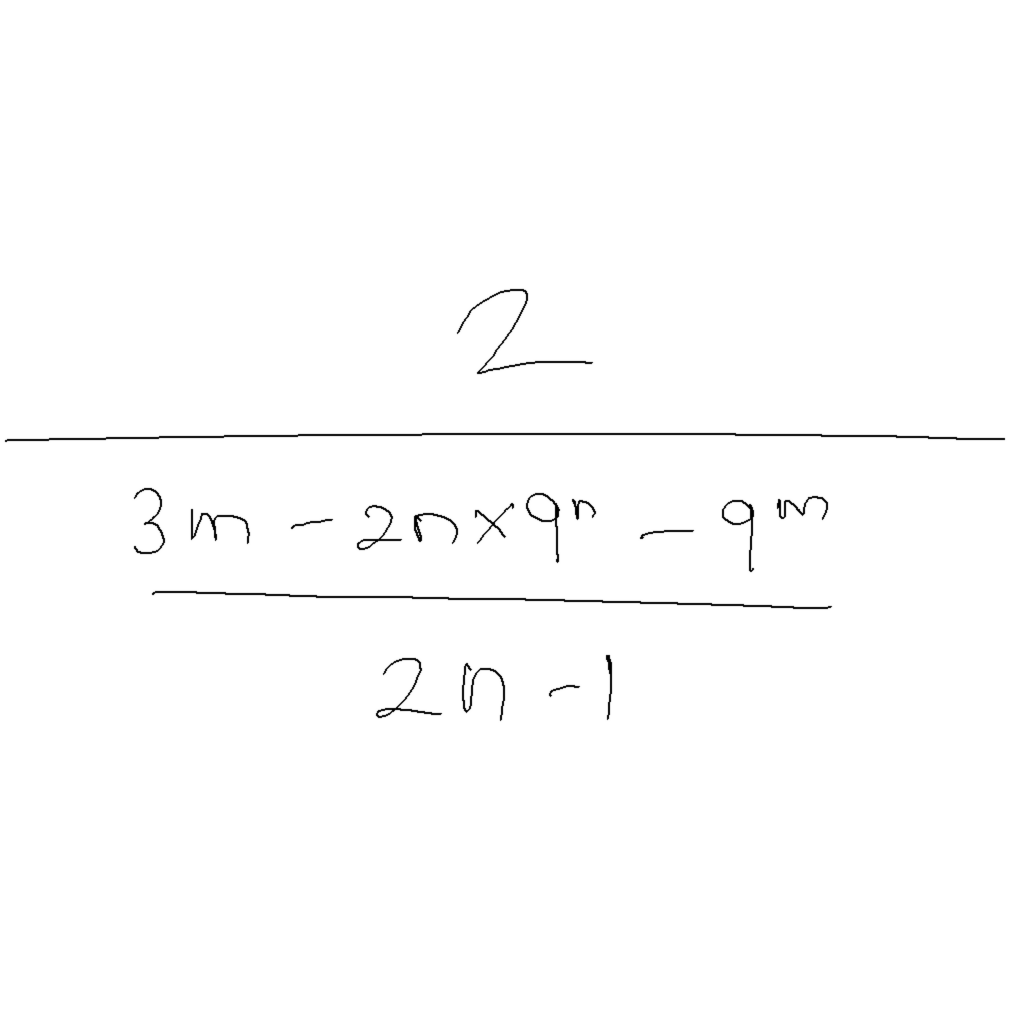 2
3m - 2n×9ⁿ - 9ᵐ
2n-1